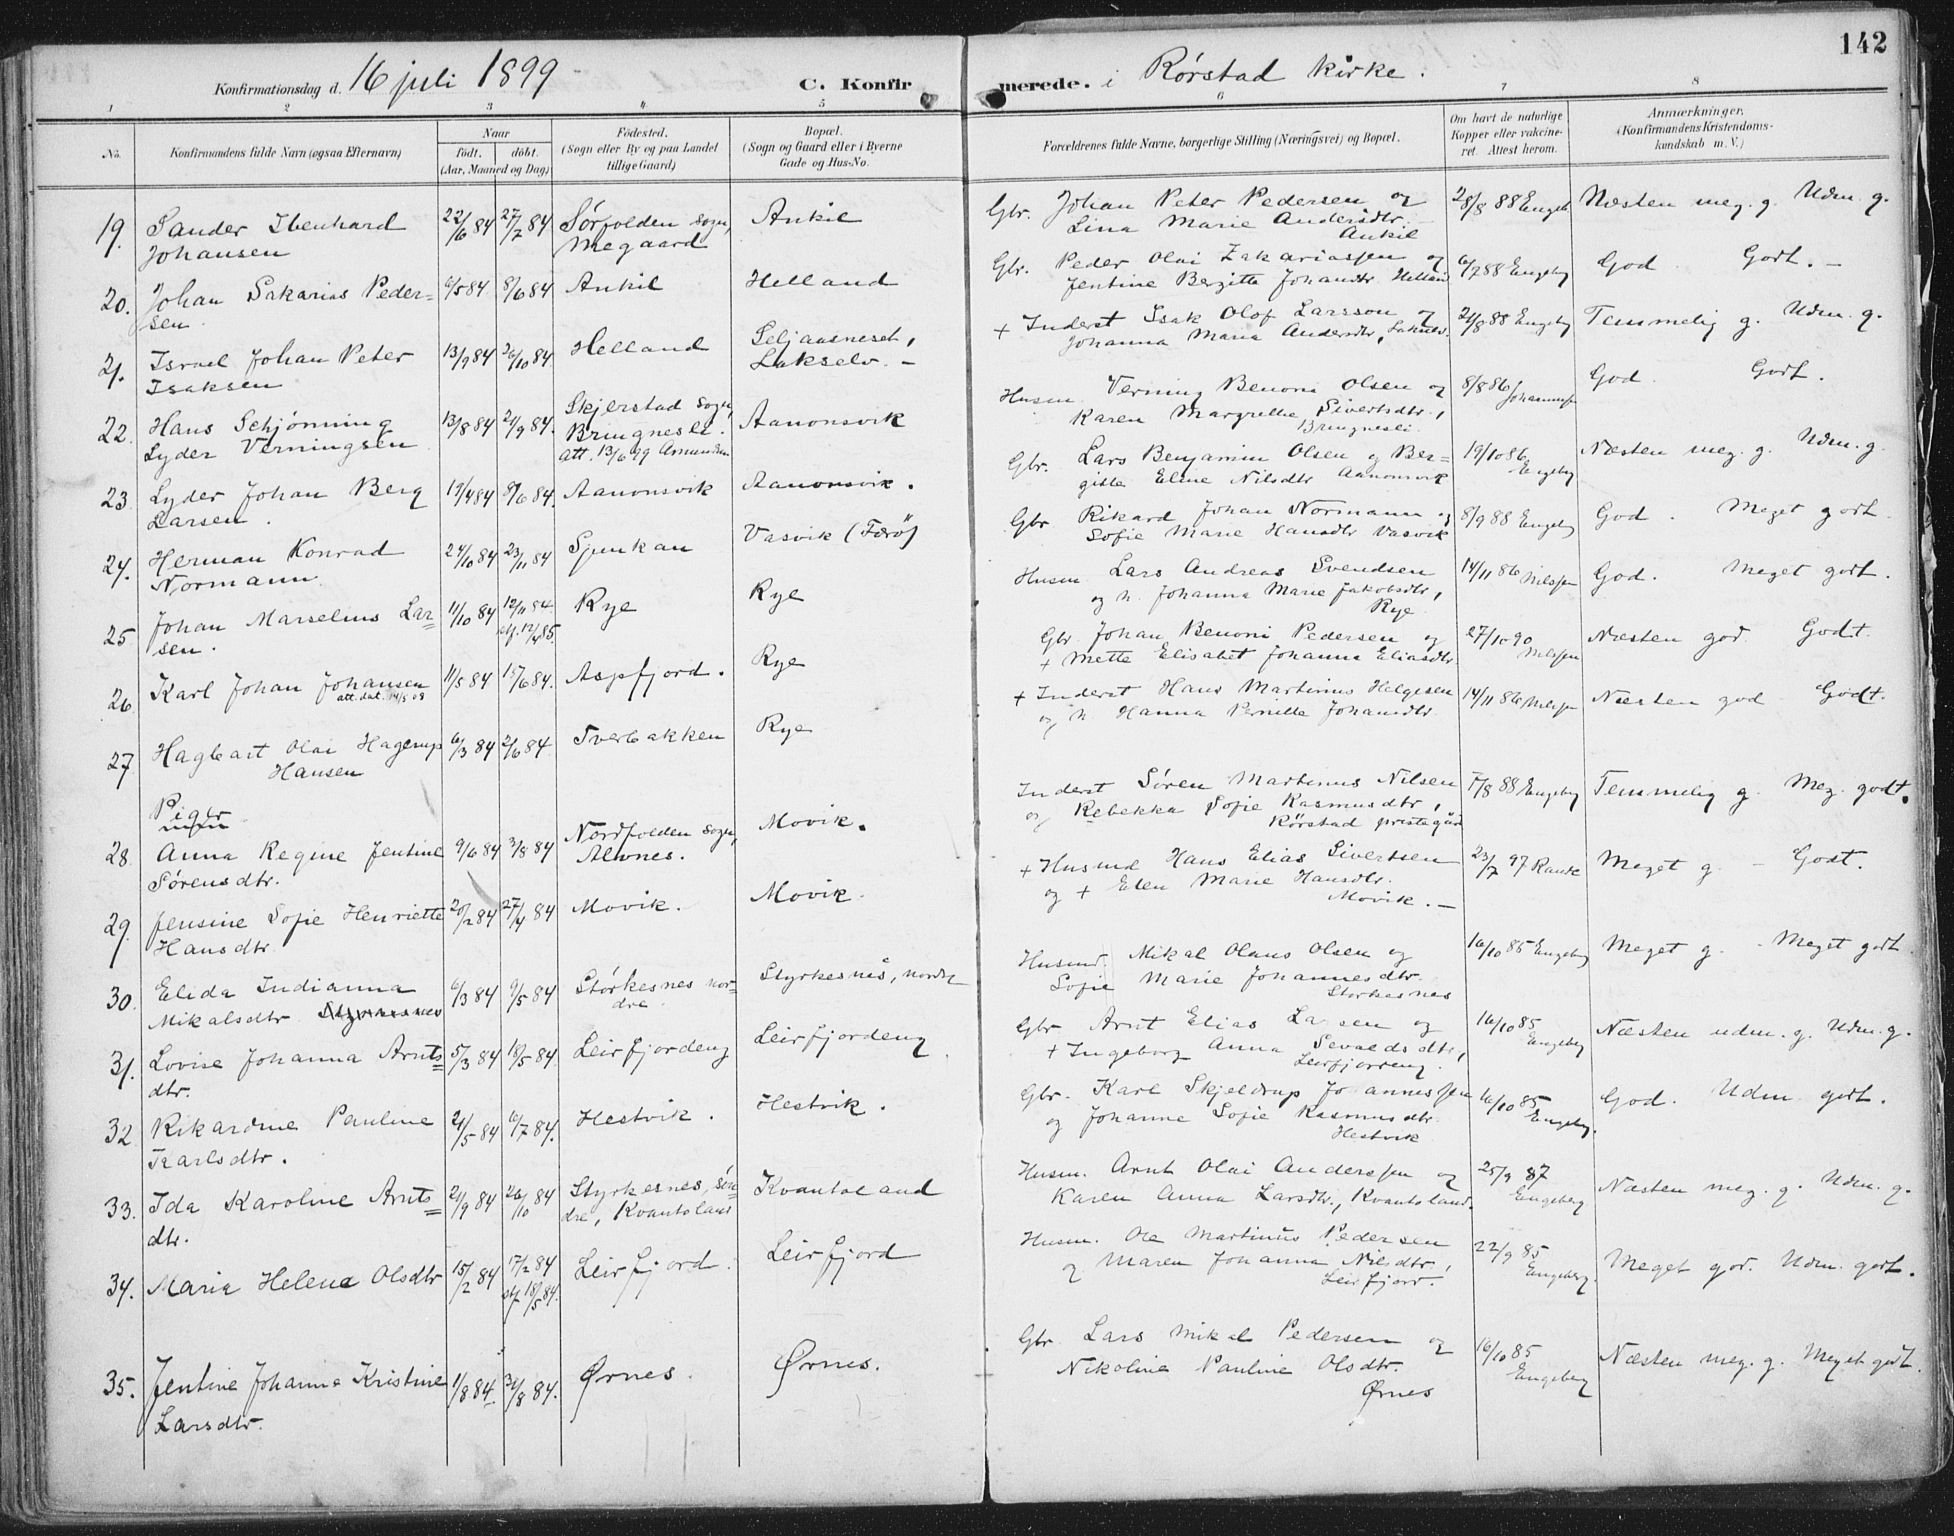 142
Konfirmationsdag d. 16 juli 1899
C. Konfirmerede. i Rørstad kirke.
1 2 3 4 5 6 7 8
No.
Konfirmandens fulde Navn (ogsaa Efternavn)
Naar
født. døbt.
(Aar, Maaned og Dag)
Fødested.
(Sogn eller By og paa Landet
tillige Gaard)
Bopæl.
(Sogn og Gaard eller i Byerne
Gade og Hus-No.
Forældrenes fulde Navne, borgerlige Stilling (Næringsvei) og Bopæl.
Om havt de naturlige
Kopper eller vakcine-
ret. Attest herom.
Anmærkninger.
(Konfirmandens Kristendoms-
kundskab m. V.)
19. Sander Ibenhard 22/6 84 27/7 84 Sørfolden sogn, Ankil Gbr. Johan Peter Pedersen og 28/8 88 Engeb. Næsten meg. g. Udm. g.
Johansen Megaard Lina Marie Andersdtr.
Ankil
20. Johan Sakarias Peder- 6/5 84 8/6 84 Ankil Helland Gbr. Peder Olai Zakariassen og 6/7 88 Engeberg God Godt. -
sen. Jentine Bergitte Johansdtr. Helland
21. Israel Johan Peter 13/9 84 26/10 84 Helland Seljaasneset, + Inderst Isak Olof Larsson og 21/8 88 Engeberg Temmelig g. Udm. g.
Isaksen Lakselv. - Johanna Maria Andersdtr, Lakselv.
22. Hans Schjønning 13/8 84 21/9 84. Skjerstad sogn, Aanonsvik Husm. Verning Benoni Olsen og 8/8 86 Johannesen God. Godt.
Lyder Verningsen Bringnesli. Karen Margrethe Sivertsdtr.,
att. 13/6 99 Amundsen Bringnesli
23 Lyder Johan Berg 19/4 84 8/6 84. Aanonsvik Aanonsvik. Gbr. Lars Benjamin Olsen og Ber- 19/10 86 Engeberg Næsten meg. g. Udm. g.
Larsen. gitte Eline Nilsdtr Aanonsvik
24. Herman Konrad 24/10 84 23/11 84 Sjunkan Vasvik (Færö) Gbr Rikard Johan Normann og 8/9 88 Engeberg God. Meget godt.
Normann. Sofie Marie Hansdtr Vasvik
25 Johan Marselius Lar- 11/10 84 12/11 84 Rye Rye Husm. Lars Andreas Svendsen 14/11 86 Nilssen God. Meget godt.
sen. stf. 12/4 85. og h. Johanna Marie Jakobsdtr,
Rye
26 Karl Johan Johansen 11/5 84 15/6 84. Aspfjord. Rye Gbr. Johan Benoni Pedersen og 27/10 90 Nilssen Næsten god. Godt.
att. dat. 14/5 08 + Mette Elisabet Johanna Eliasdtr
27 Hagbart Olai Hagerup 6/3 84 2/6 84. Tverbakken Rye + Inderst Hans Martinus Helgesen 14/11 86 Nilssen Næsten god Godt.
Hansen og h. Hanna Pernille Johansdtr.
Piger
28 Anna Regine Jentine 9/6 84 3/8 84 Nordfolden sogn, Movik. Inderst Sören Martinus Nilsen 7/8 88 Engeberg Temmelig g. Meg. godt.
Sørensdtr. Alvnes. og Rebekka Sofie Rasmusdtr,
Rørstad prestegård
29. Jensine Sofie Henriette 20/2 84 27/4 84 Movik. Movik. + Husmd Hans Elias Sivertsen 23/7 97 Raude Meget g. - Godt.
Hansdtr og + Elen Marie Hansdtr.
Movik. -
30. Elida Indianna 6/3 84 9/5 84 Störkesnes nor- Styrkesnes, nordre Husmd. Mikal Olaus Olsen og 16/10 85 Engeberg Meget g. - Meget godt.
Mikalsdtr dre. Sofie Marie Johannesdtr
Storkesnes
31. Lovise Johanna Arnts- 5/3 84 18/5 84. Leirfjordeng Leirfjordeng Gbr Arnt Elias Larsen og 16/10 85 Engeberg Næsten udm. g. Udm. g.
dtr. + Ingeborg Anna Sevaldsdtr,
Leirfjordeng.
32 Rikardine Pauline 21/5 84 6/7 84. Hestvik. Hestvik. Gbr. Karl Skjeldrup Johannessen 16/10 85 Engeberg. God. Udm. godt.
Karlsdtr. og Johanne Sofie Rasmusdtr.
Hestvik
33. Ida Karoline Arnts- 21/9 84 26/10 84 Styrkesnes, søn- Kvantoland Husm. Arnt Olai Anderssen og 25/9 87 Engeberg Næsten meg. g. Udm. g.
dtr. dre, Kvantoland Karen Anna Larsdtr., Kvantoland.
34. Maria Helene Olsdtr 15/2 84 17/2 84 Leirfjord. Leirfjord Husm. Ole Martinus Pedersen 22/9 85 Engeberg. Meget god. Udm. godt.
stf 18/5 84. og Maren Johanna Nilsdtr,
Leirfjord.
35. Jentine Johanna Kristine 1/8 84 31/8 84. Ørnes. Ørnes. Gbr. Lars Mikal Pedersen og 16/10 85 Engeberg Næsten meg. g. Meget godt.
Larsdtr. Nikoline Pauline Olsdtr.
Ørnes